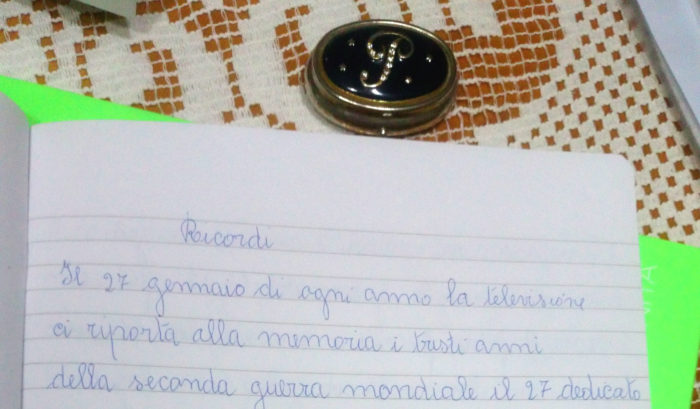 P
Ricordi
Il 27 gennaio di ogni anno la televisione
ci riporta alla memoria i tristi anni
della seconda guerra mondiale il 27 dedicato